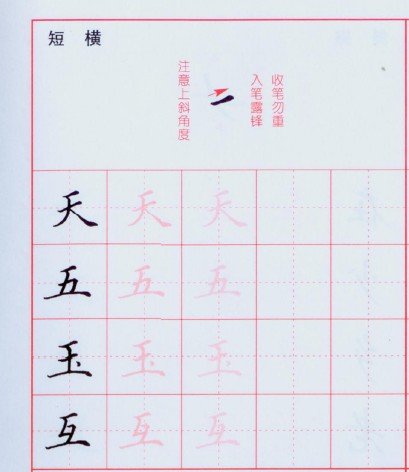 短横
注意上斜角度
入笔露锋
收笔勿重
天 天 天
五 五 五
玉 玉 玉
互 互 互